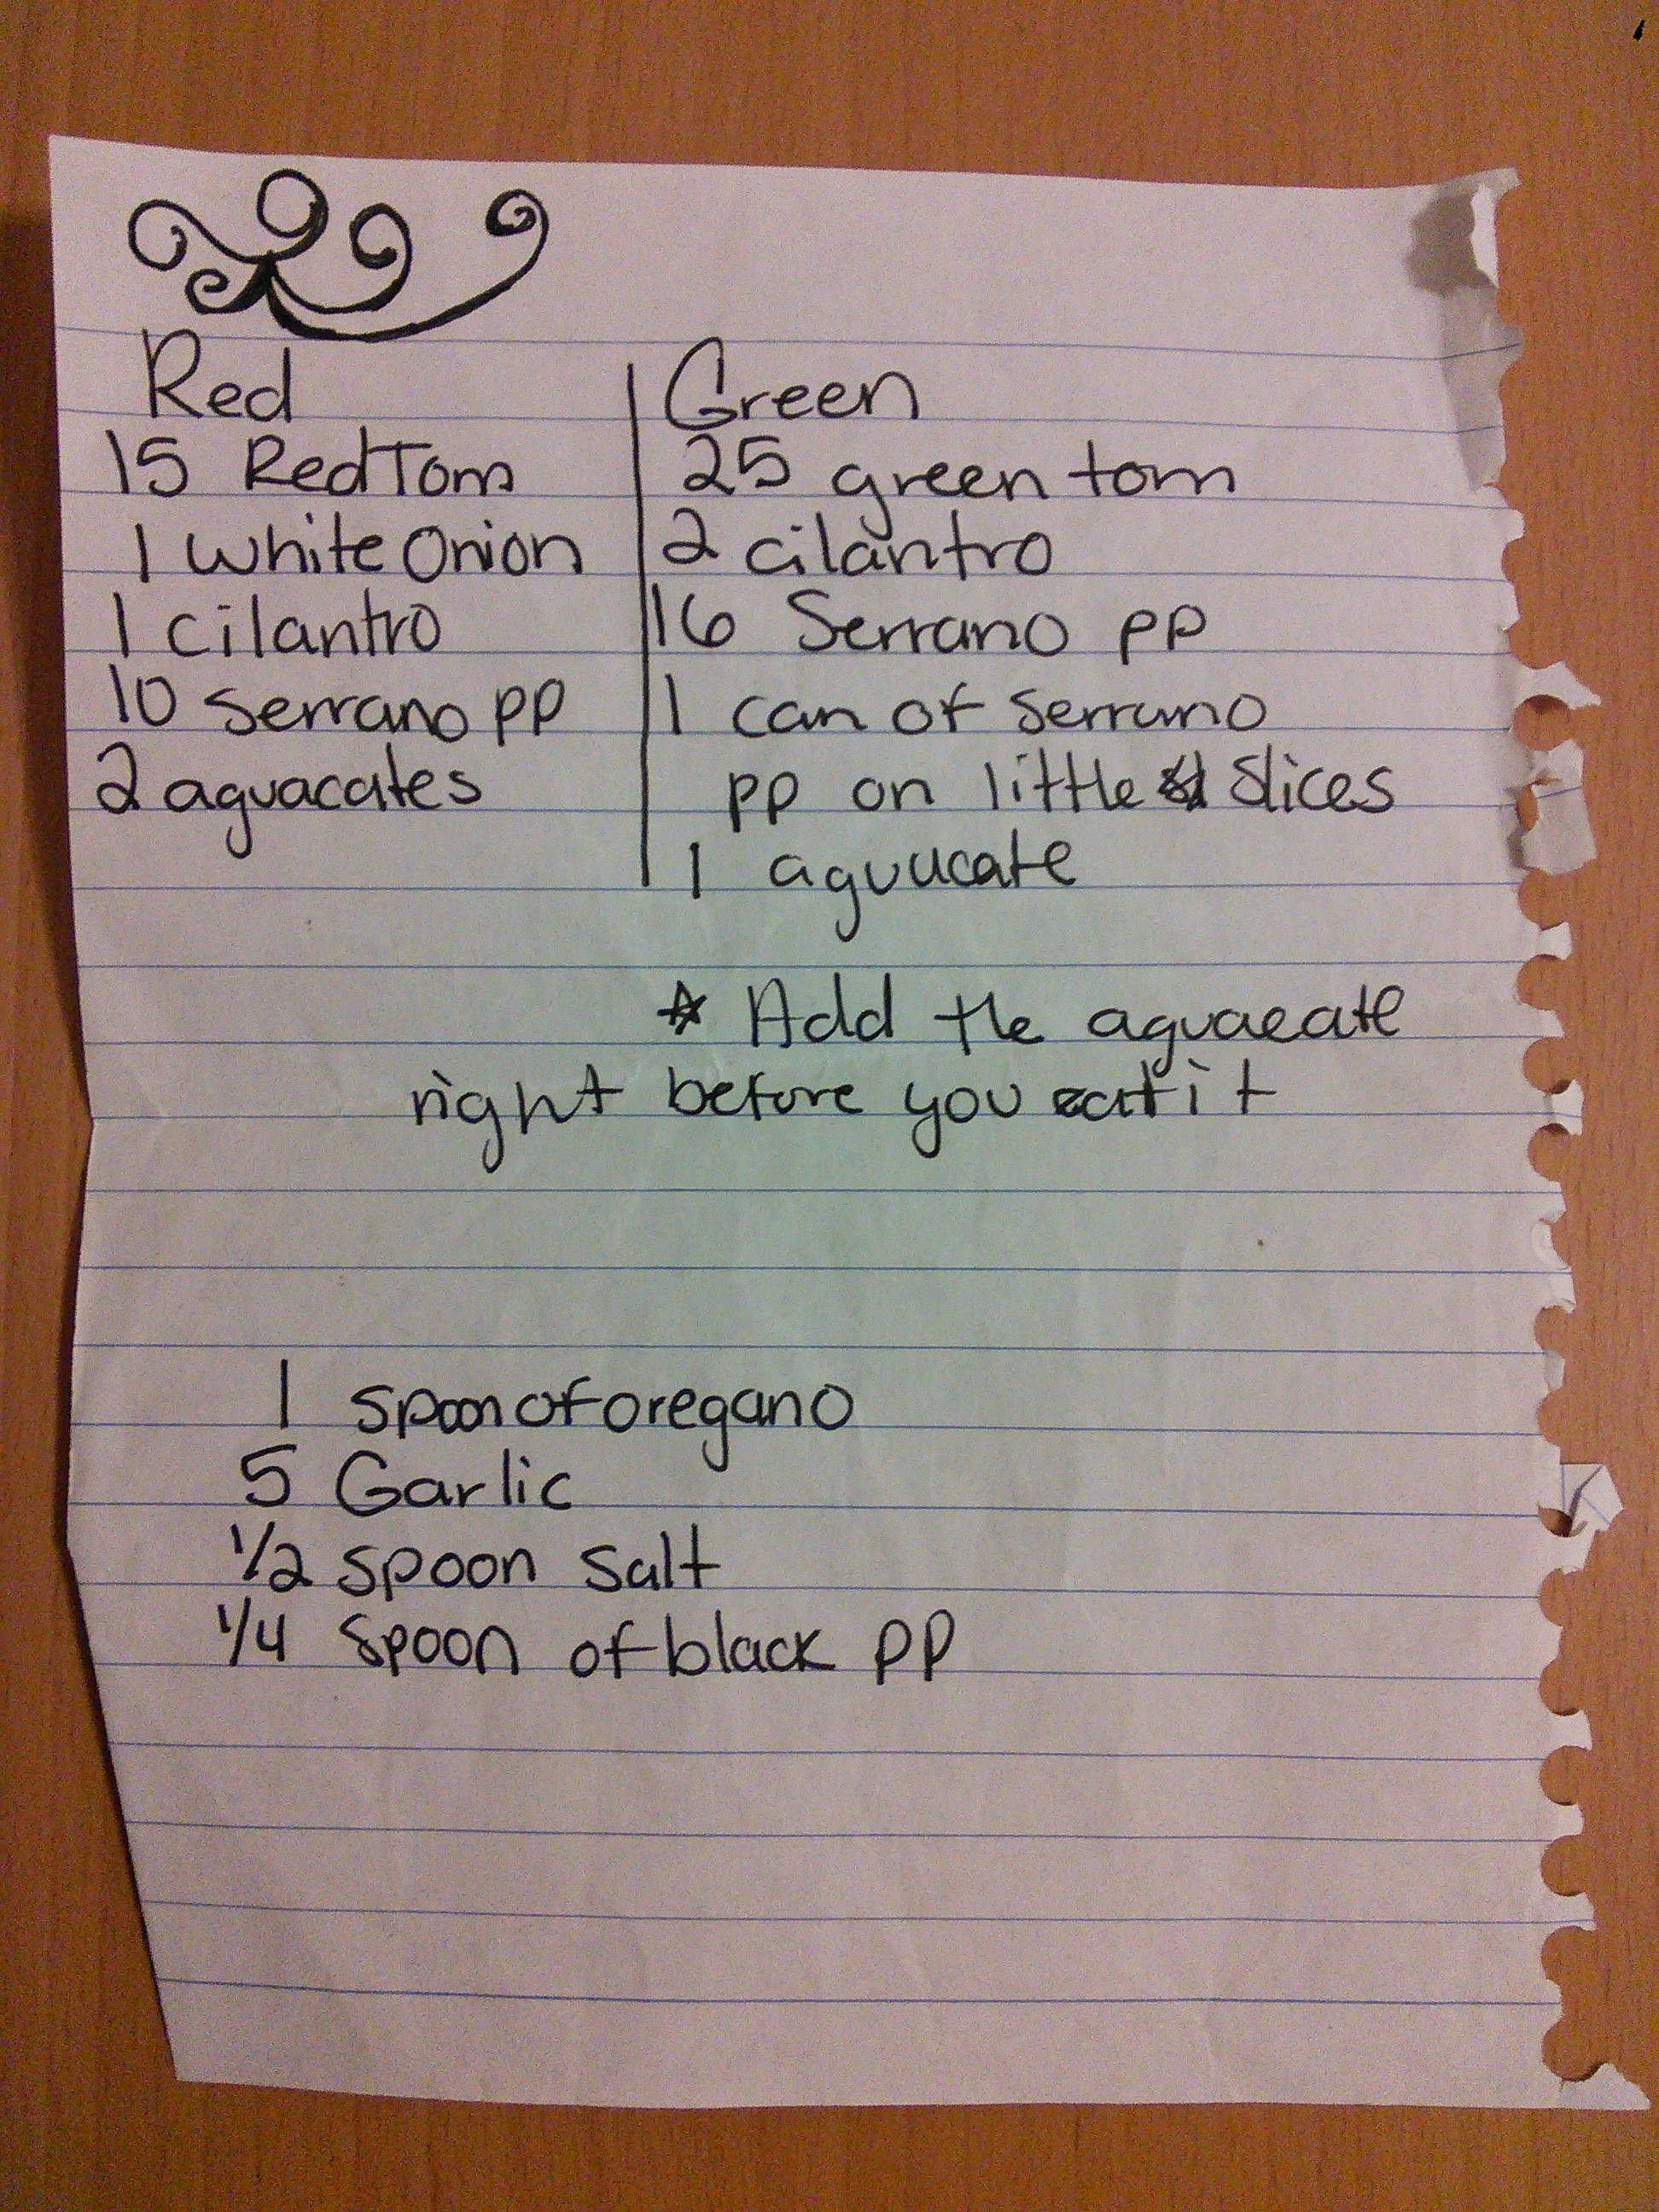 Red
15 Red Toms
1 white Onion
1 cilantro
10 serrano pp
2 aguacates
Green
25 green tom
2 cilantro
16 Serrano pp
1 can of serrano
pp on little slices
1 aguacate
* Add the aguacate
right before you eat it
1 spoon of oregano
5 Garlic
1/2 spoon salt
1/4 spoon of black pp